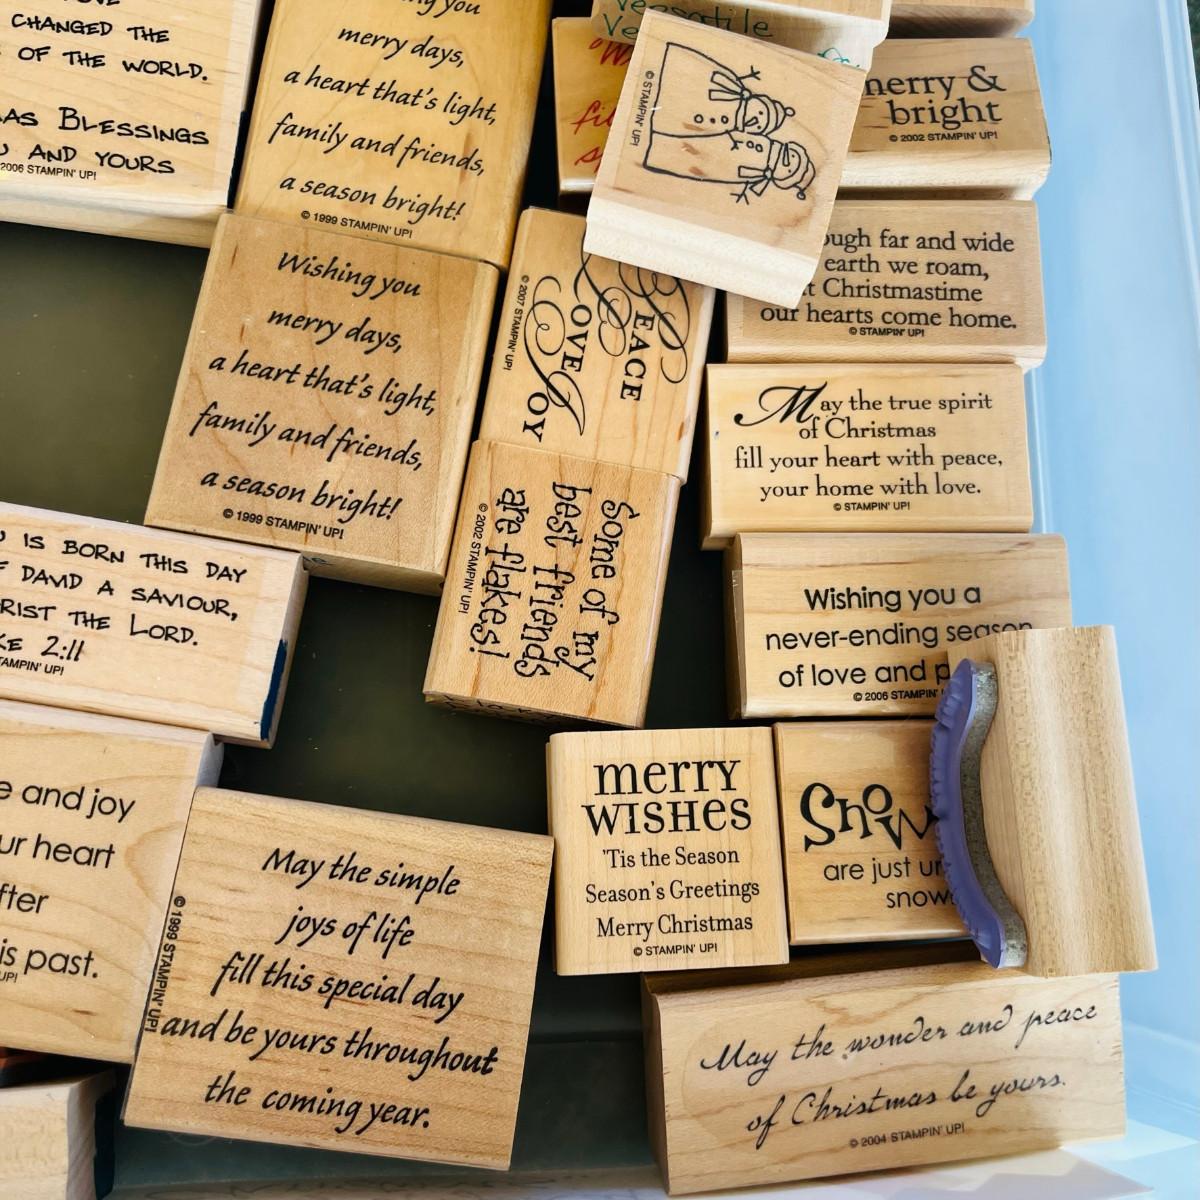 CHANGED THE
OF THE WORLD.
BLESSINGS
AND YOURS
2006 STAMPIN' UP!
you
merry days,
a heart that's light,
family and friends,
a season bright!
© 1999 STAMPIN' UP!
Versatile
© STAMPIN' UP!
merry &
bright
© 2002 STAMPIN' UP!
far and wide
earth we roam,
Christmastime
our hearts come home.
© STAMPIN' UP!
Wishing you
merry days,
a heart that's light,
family and friends,
a season bright!
© 1999 STAMPIN' UP!
PEACE
LOVE
JOY
© 2007 STAMPIN' UP!
May the true spirit
of Christmas
fill your heart with peace,
your home with love.
© STAMPIN' UP!
Some of my
best friends
are flakes!
© 2002 STAMPIN' UP!
IS BORN THIS DAY
DAVID A SAVIOUR,
THE LORD.
2:11
STAMPIN' UP!
Wishing you a
never-ending season
of love and
© 2006 STAMPIN'
and joy
heart
is past.
UP!
merry
WISHES
'Tis the Season
Season's Greetings
Merry Christmas
© STAMPIN' UP!
Snow
are just
May the simple
joys of life
fill this special day
and be yours throughout
the coming year.
© 1999 STAMPIN' UP!
May the wonder and peace
of Christmas be yours.
© 2004 STAMPIN' UP!